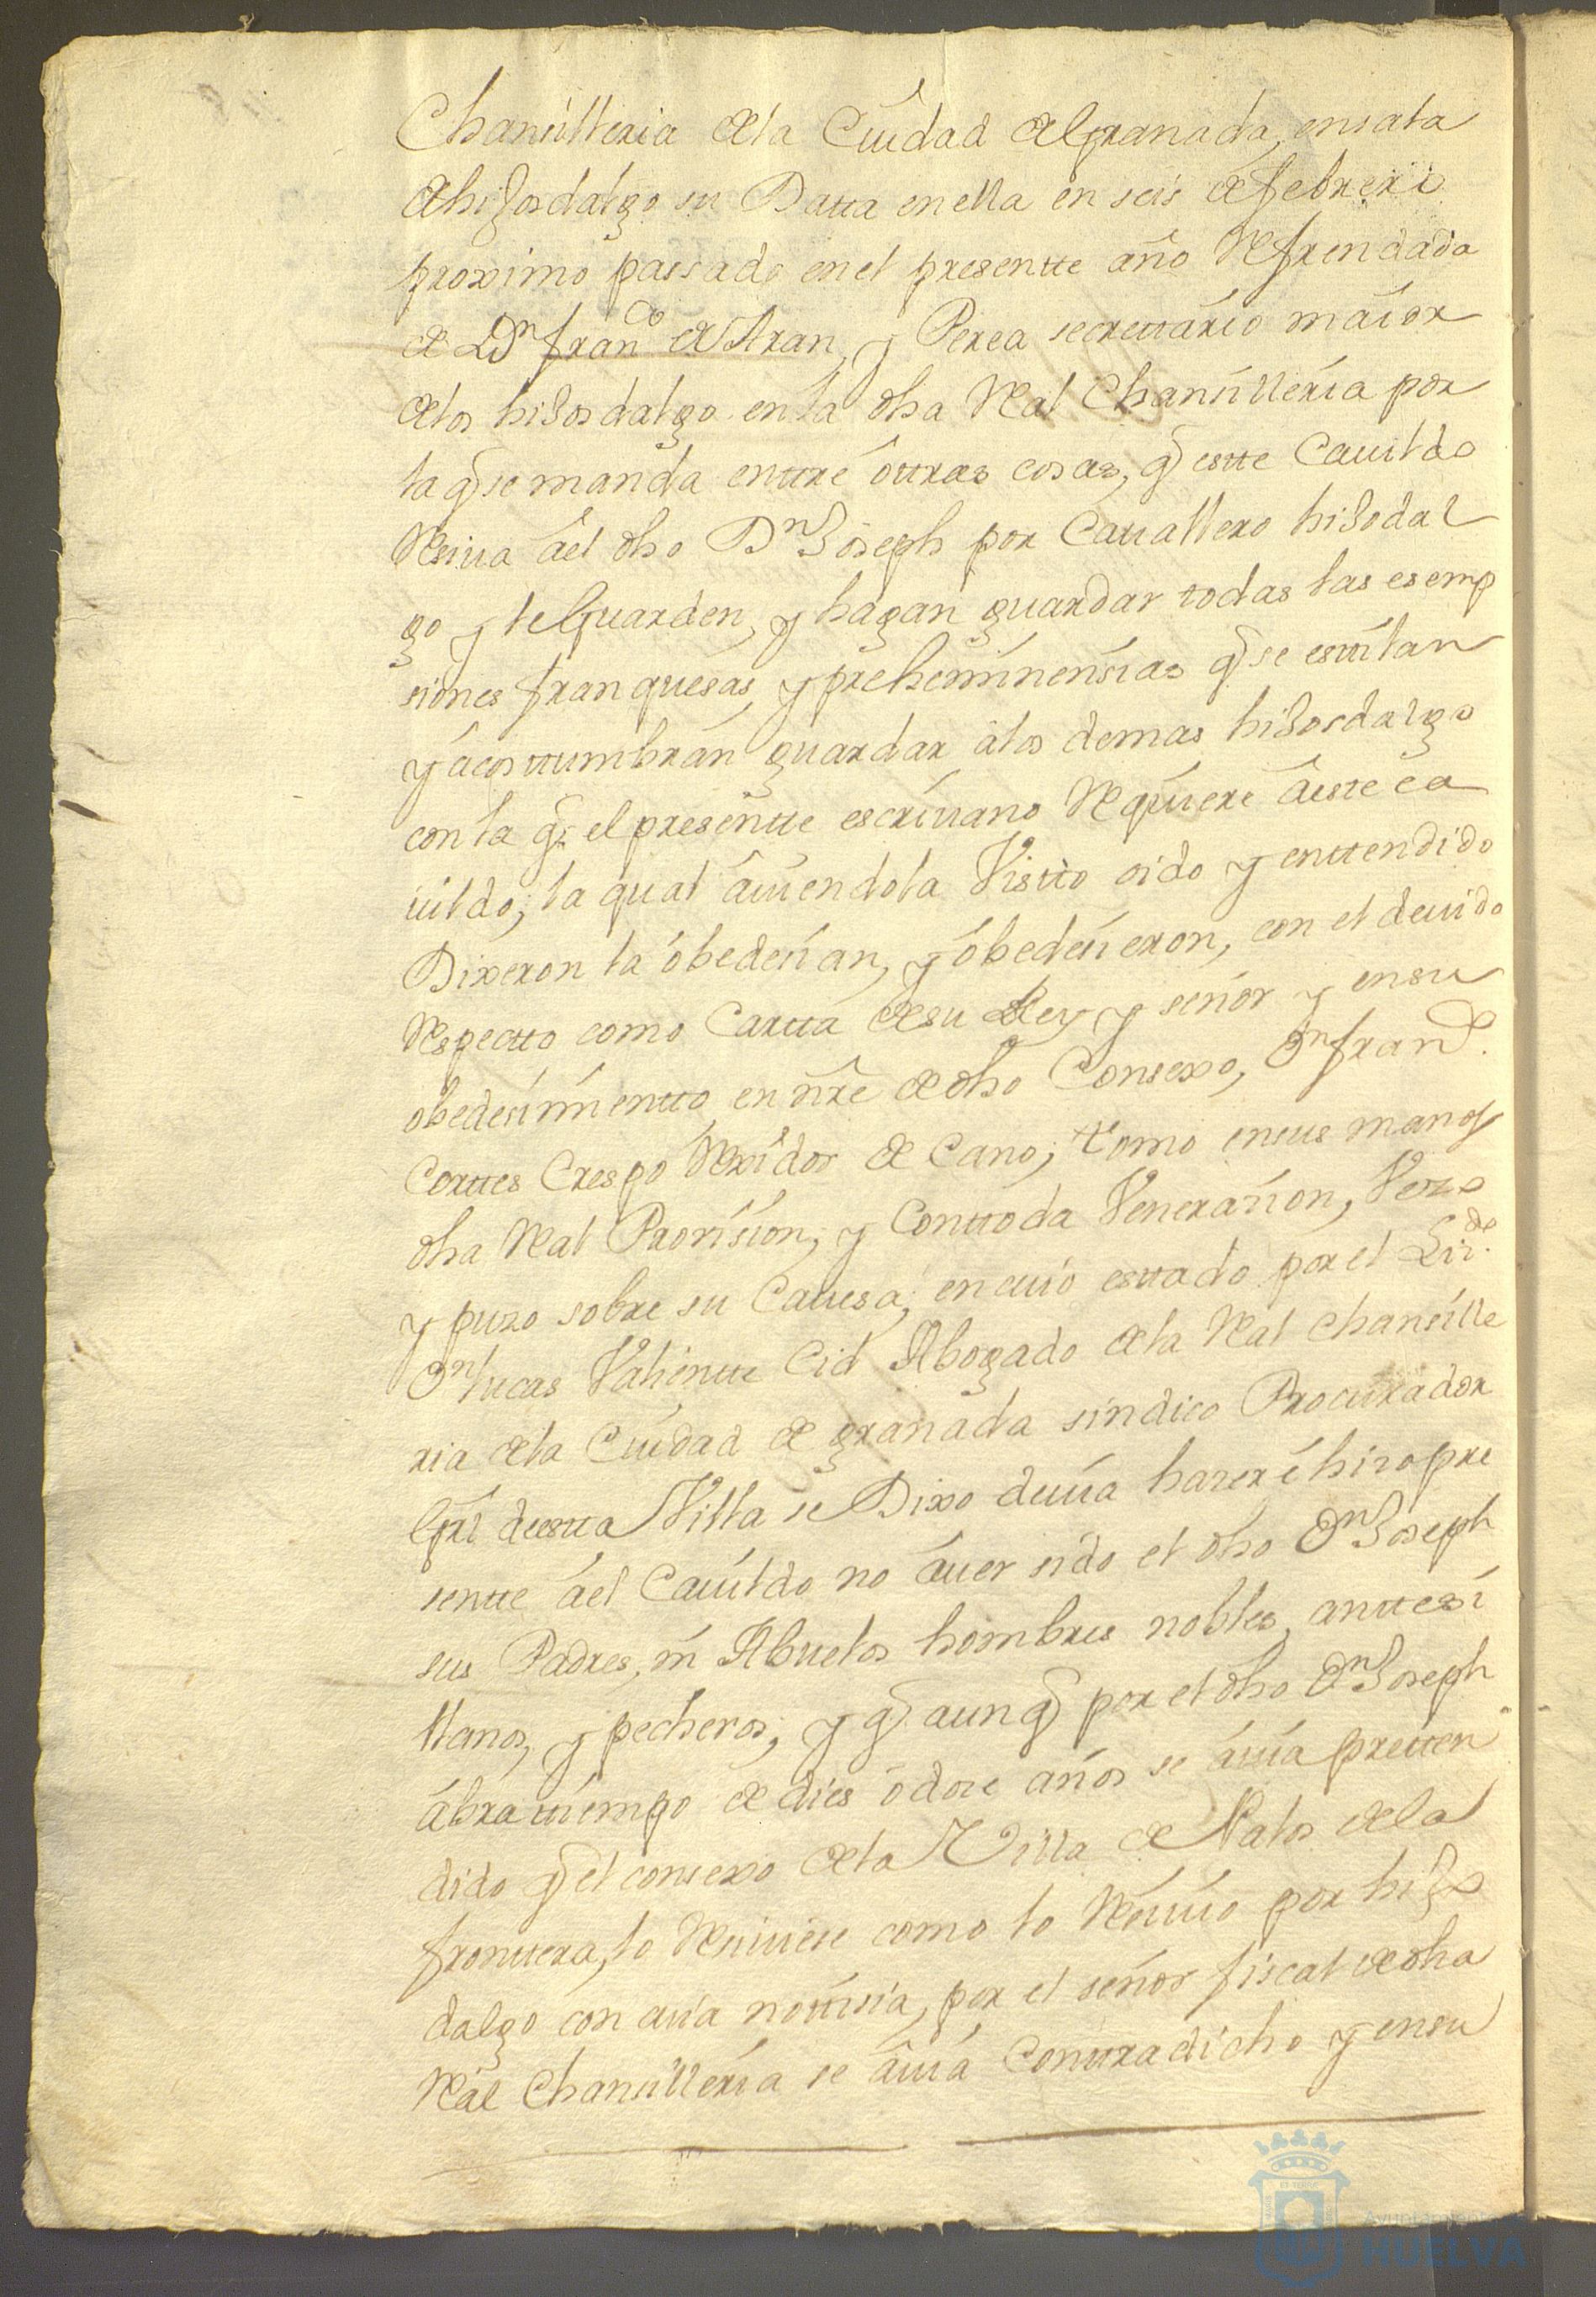 Chansilleria de la Ciudad de Granada, en sala
de hijosdalgo su Datta en ella en seis de febrero
proximo passado en el presentte año Refrendada
de Dn. franco de Aran, y Perea secrettario maior
de los hijosdalgo en la dha Real Chansilleria por
la q se manda enttre ottras cosas, q estte Cauildo
Resiua áel dho Dn Joseph por Cauallero hijodal
go y le Guarden, y hagan guardar todas las esemp
siones franquesas, y preheminensias q se estilan
y ácosttumbrán guardar álos demas hijosdalgo
con la q. el presentte escriuano Requiere áeste ca
uildo; la qual áuiendola Vistto oido y enttendido
Dixeron la óbedesian, y óbedesieron, con el deuido
Respectto como Cartta de su Rey y señor y en su
obedesimientto en nre de dho Consexo, Dn franco.
Corttes Crespo Rexidor de Cano; tomo en sus manos
dha Real Provision; y Con ttoda Venerasion, Vezo
y puzo sobre su Cauesa; en cuio esttado por el Lizdo.
Dn lucas Valientte Cid Abogado de la Real chansille
ria de la Ciudad de granada sindico Procurador
Gral deestta Villa se Dixo deuia hazer é hizo pre
sentte áel Cauildo no áuer sido el dho Dn Joseph
sus Padres, ni Abuelos hombres nobles, anttes si
llanos, y pecheros; y q aun q por el dho Dn Joseph
ábra ttiempo de dies ó dose años se áuia pretten
dido q el consexo de la Villa de Palos de la
fronttera, lo Resiuiese como lo Resiuio por hijo
dalgo con cuia nottisia, por el señor fiscal de dha
Real Chansilleria se áuia Conttradicho y en su
Ayuntamiento
HUELVA